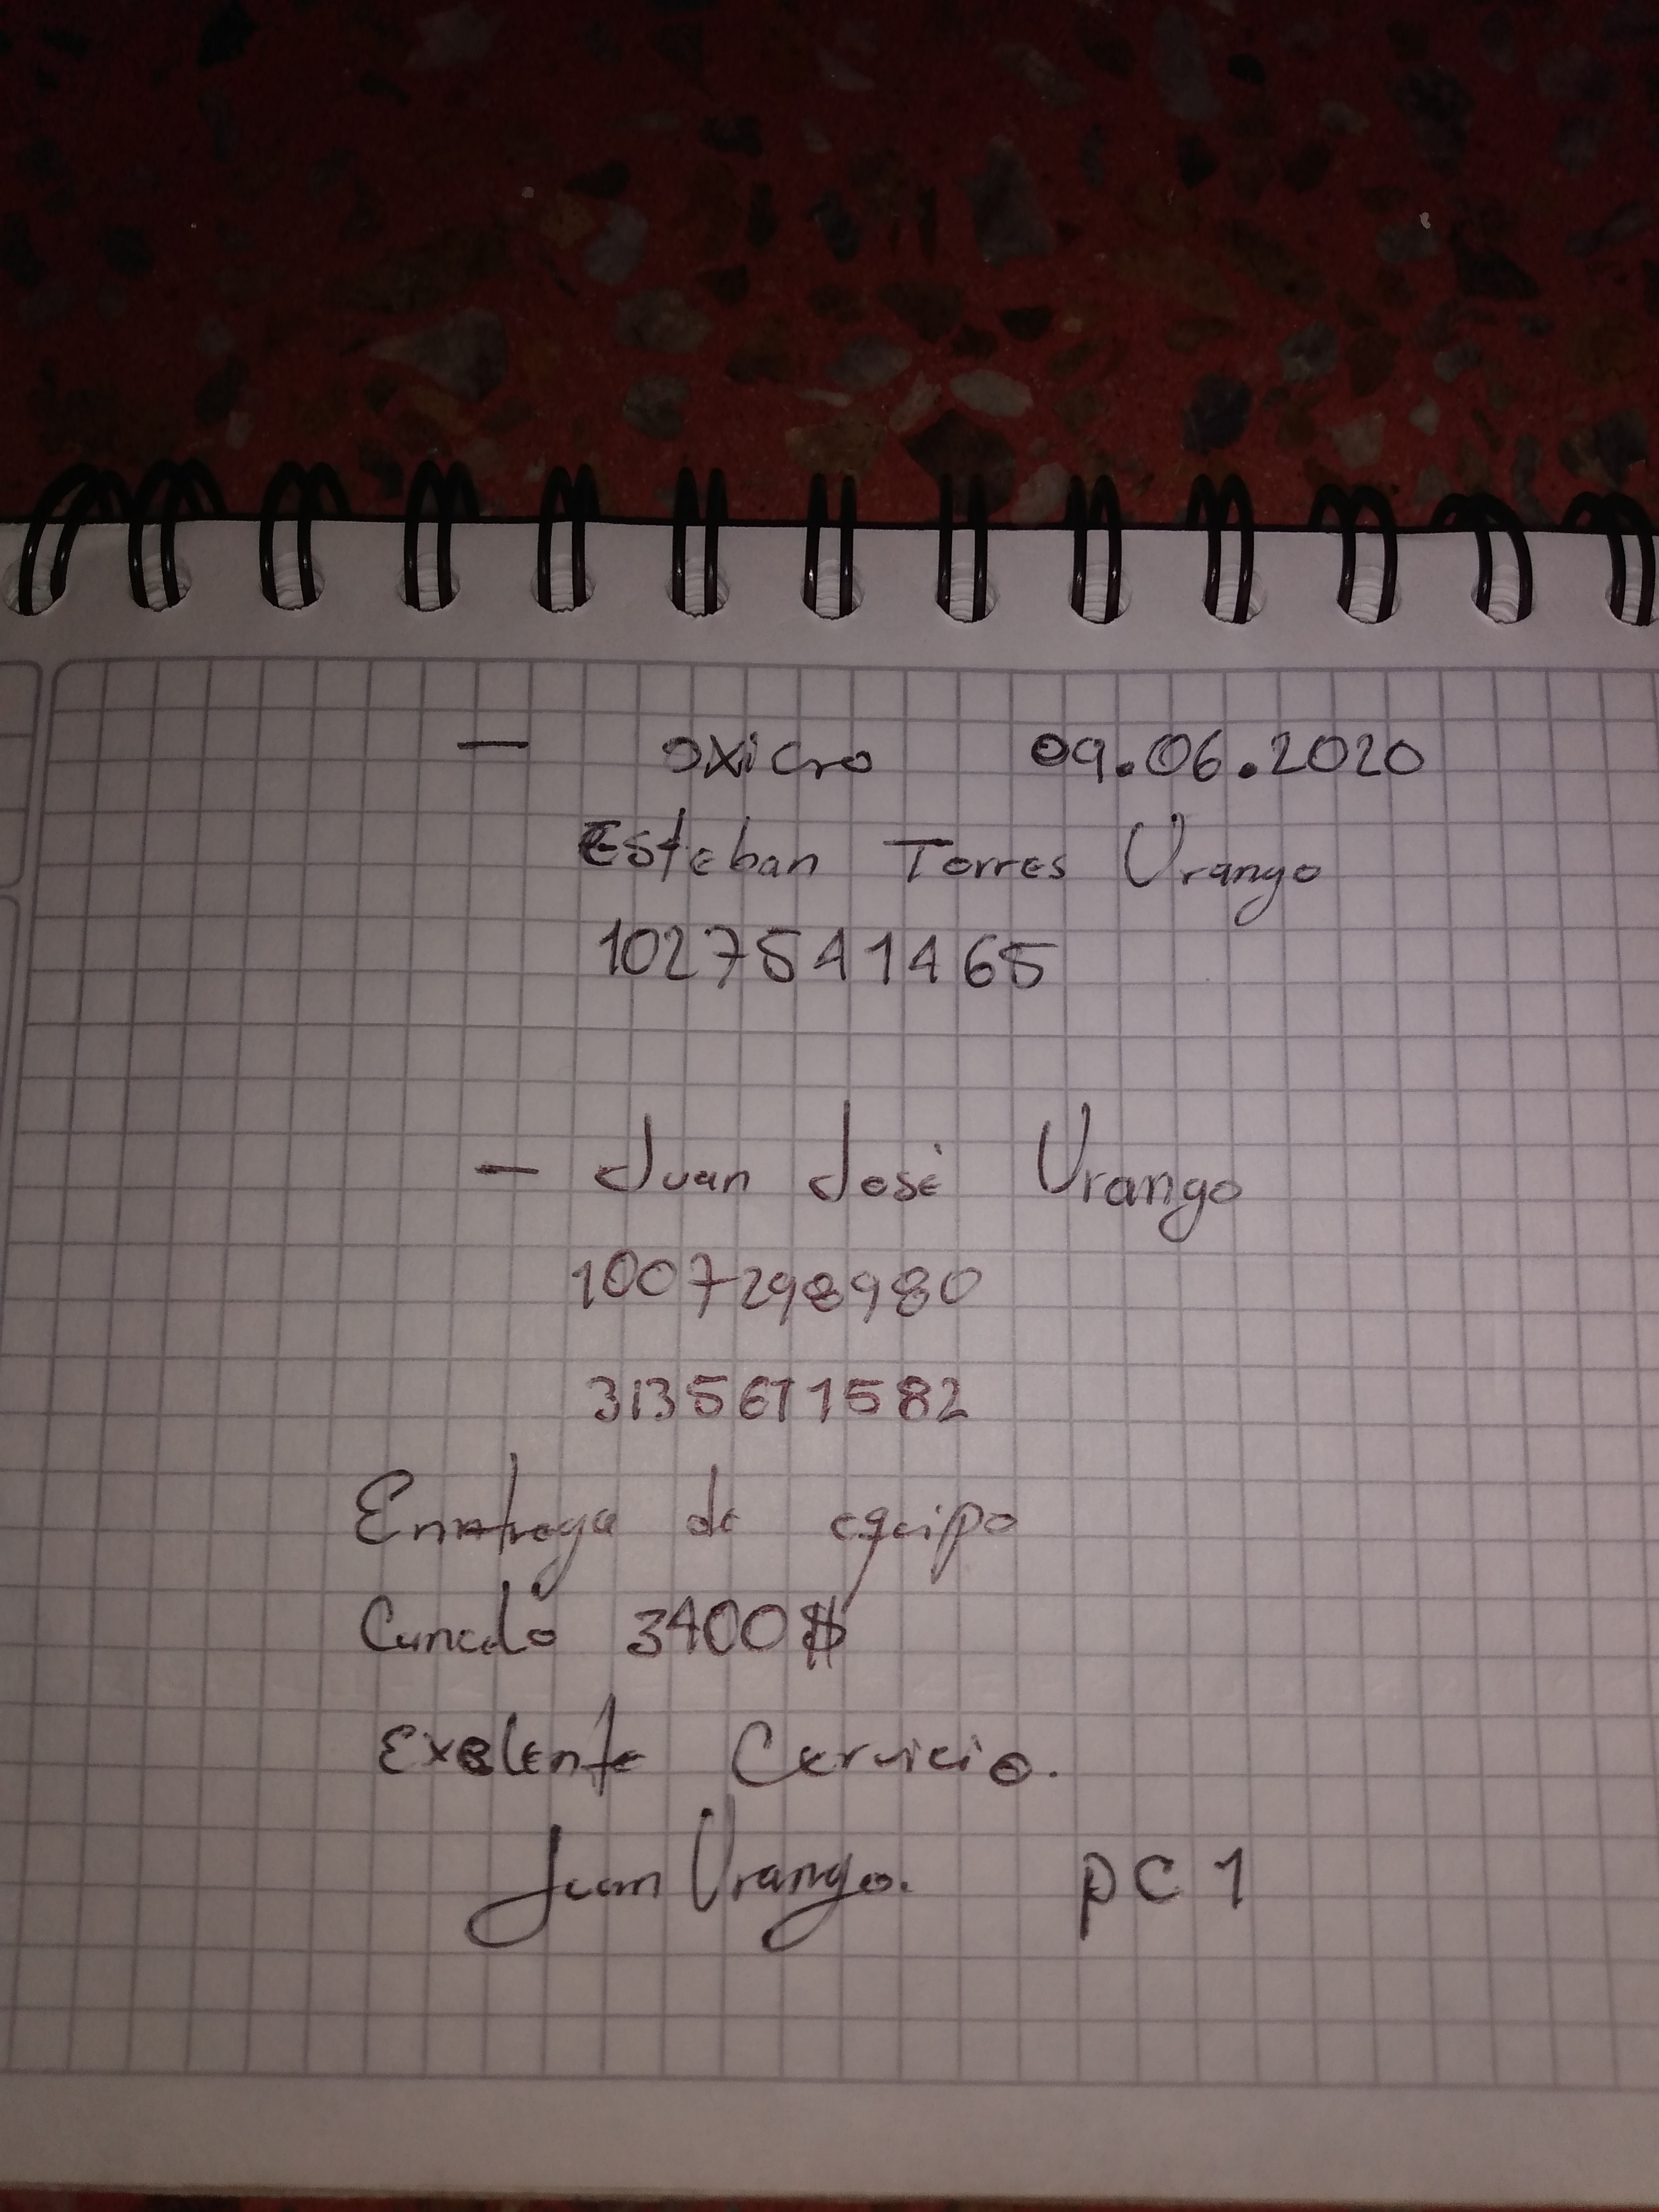 — oxicro 09.06.2020
Esteban Torres Urango
1027541465
— Juan José Urango
1007298980
3135671582
Entrega de equipo
3400$
Exelente Cervicio.
Juan Urango. PC 1